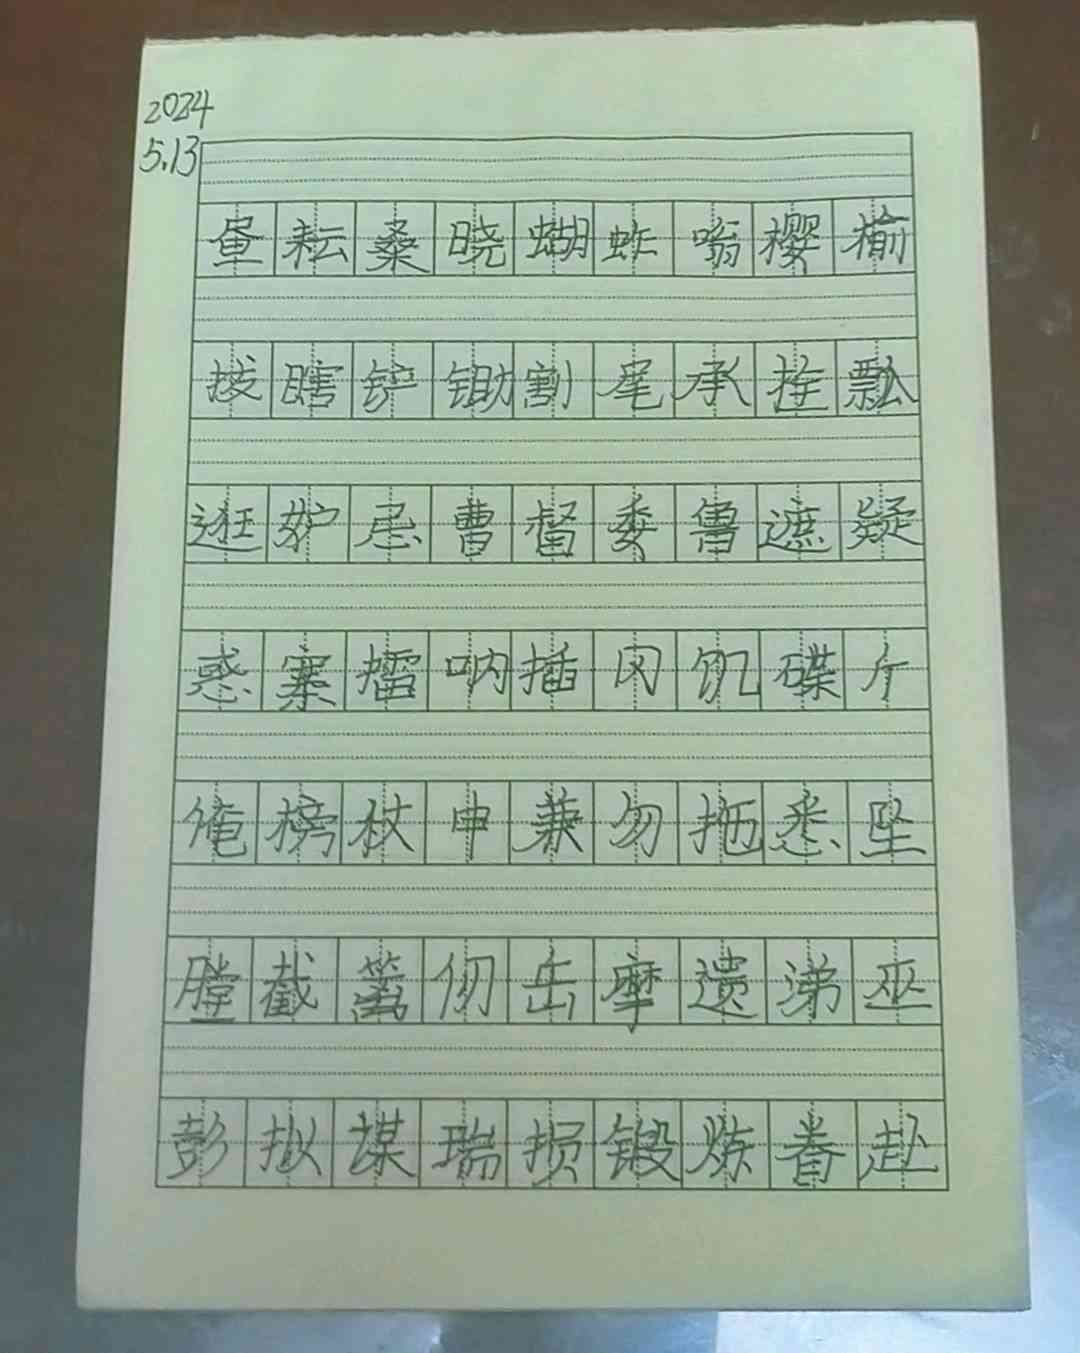 2024
5.13
昼耘桑晓蝴蚱嗡樱榆
拔瞎铲锄割尾承拴瓢
逛妒忌曹督委鲁遮疑
惑寨擂呐插冈饥碟斤
俺榜杖申兼勿拖悉坠
膛截篱仞岳摩遗涕巫
彭拟谋瑞损锻炼眷赴